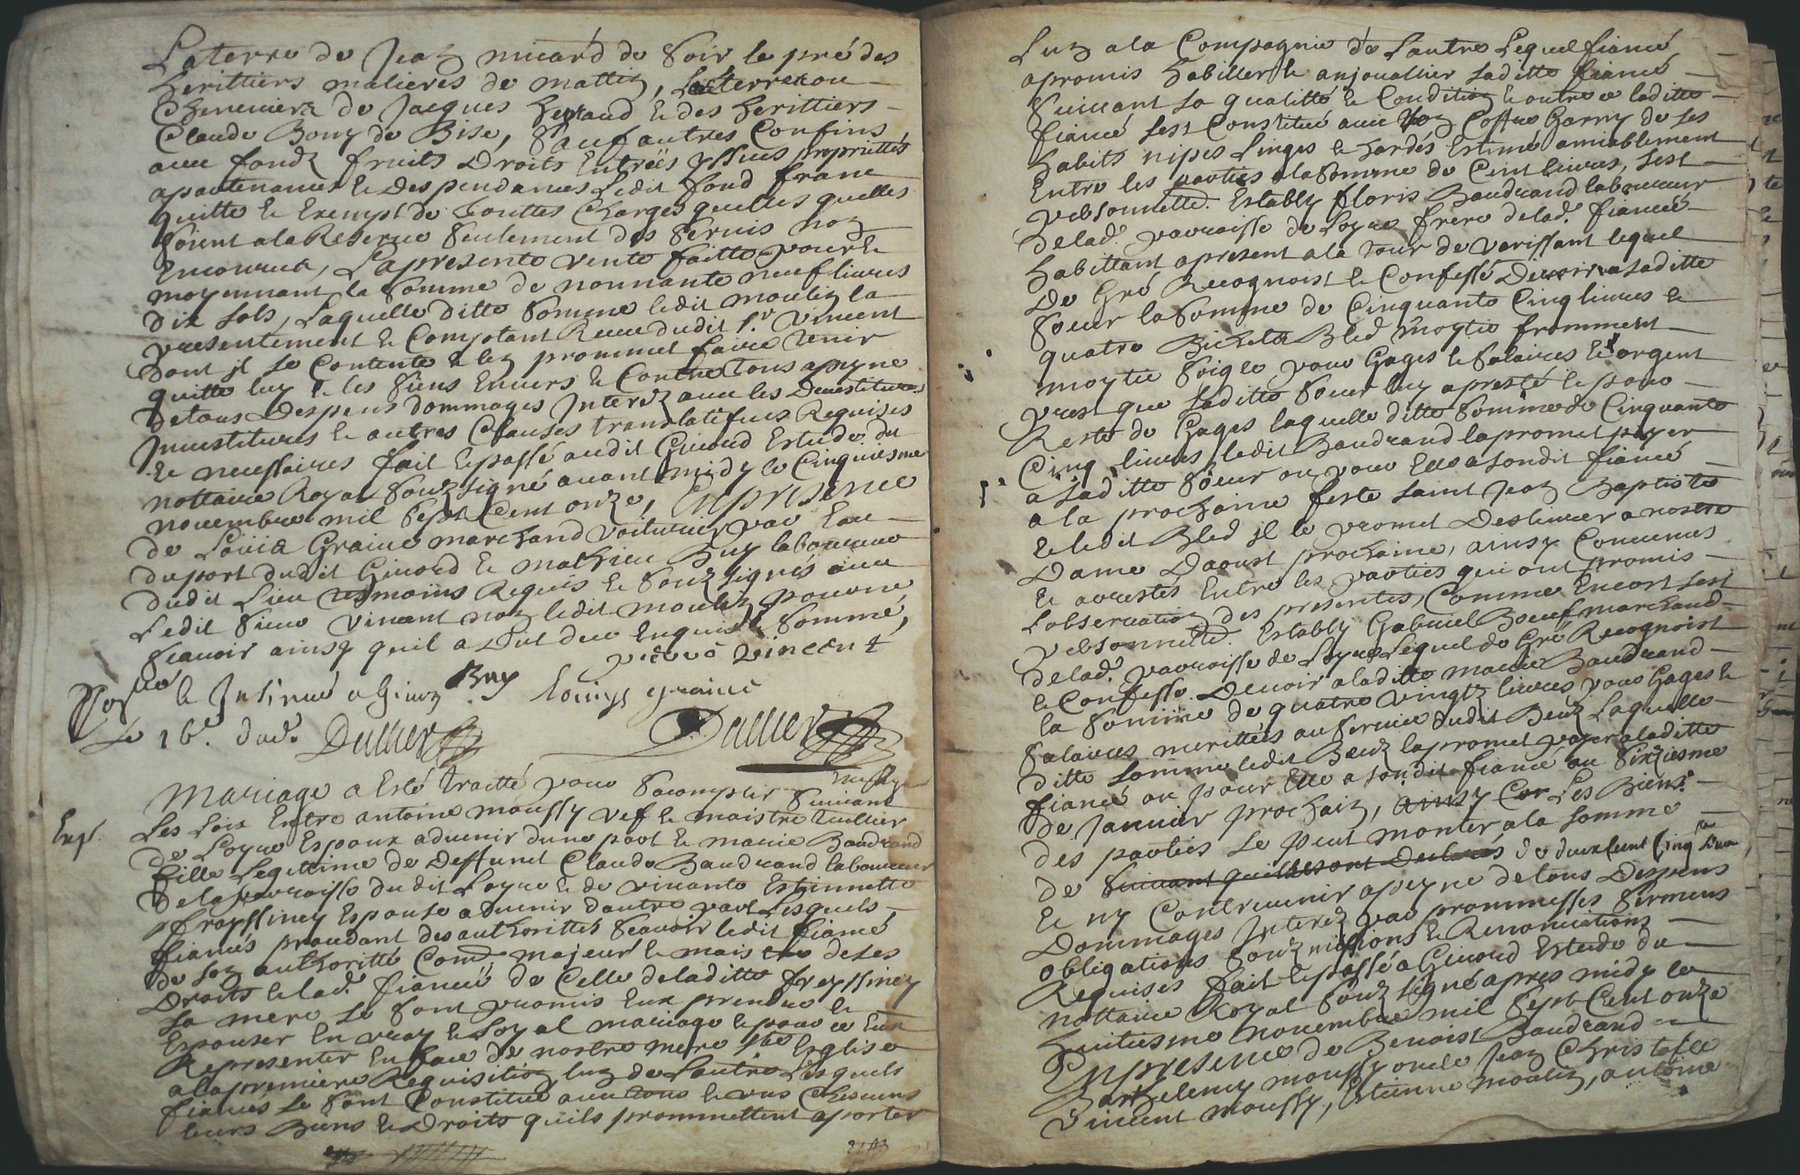 La terre de Jean micard de soir le pré des
heritiers malieres de mattin, La terre ou
Cheneviera de Jacques heraud & des heritiers
Claude Bony de Bise, Sauf autres Confins
avec fondz fruits Droits Entrées yssues proprietés
apartenances & Despendances Ledit fond franc
quitte & Exempt de Touttes Charges quelles quelles
soient a la Reserve seulement des servis non
Encourus, La presente vente faitte pour &
moyennant la somme de nonnante neuf livres
dix sols, Laquelle ditte somme ledit moulin la
presentement & Comptant Receu dudit Sr. Vincent
dont il se Contente & len prommet faire tenir
quitte luy & les siens Envers & Contre tous apeyne
de tous Despens dommages Interez avec les Devestitures
Investitures & autres Clauses translatifves Requises
& necessaires fait & passé audit Givord Estude du
nottaire Royal Souzsigné avant midy le Cinquiesme
novembre mil sept Cent onze, En presence
de Louis Graine marchand voiturier par Eau
du port dudit Givord & mathieu Buy laboureur
dudit Lieu tesmoins Requis & souz signés avec
Ledit sieur Vincent non ledit moulin pour ne
scavoir ainsy quil a dit deu Enquis & sommé,
Vincent
Buy louys graine
& Insinué a Givord
Le 16e. dud. Dallier Dallier
Mariage a Esté traitté pour sacomplir suivant
Exp. Les Loix Entre antoine moussy vef & maistre tuillier
de Loyre Espoux advenir dune part & marie Baudrand
fille Legitime de Deffunct Claude Baudrand laboureur
de la parroisse dudit Loyre & de vivante Estiennette
freyssiney Espouse advenir dautre part Lesquels
fiancés procedant des authorittés scavoir ledit fiancé
de son authoritté Come majeur & mais de ses
Droits & lad. fiancée de Celle de laditte freyssiney
sa mere se sont promis Eux prendre &
Espouser En vray & Loyal mariage & pour ce Eux
Representer En face de nostre mere Ste Eglise
a la premiere Requisition lun de Lautre Lesquels
fiancés se sont Constitué avec tous & uns Chescuns
leurs Biens & Droits quils prommettent aporter
Lun a la Compagnie de Lautre Lequel fiancé
a promis habiller & anjoualler saditte fiancée
suivant sa qualitté & Condition & outre ce laditte
fiancée sest Constituée avec son Coffre Garny de ses
habits nipes Linges & hardes Estimé amiablement
Entre les parties a la somme de Cent livres, sest
personnellt. Estably floris Baudrand laboureur
de lad. parroisse de Loyre frere de lad. fiancée
habittant apresent a la tour de Varissant lequel
De Gré Recognoist & Confesse Devoir a saditte
soeur la somme de Cinquante Cinq livres &
quatre Bichets Bled moytie fromment
moytie soigle pour Gages & salaires & argent
prest que saditte soeur luy a presté & pour
Reste de Gages laquelle ditte somme de Cinquante
Cinq livres ledit Baudrand la promet payer
a saditte soeur ou pour Elle a sondit fiancé
a la prochaine feste saint Jean Baptiste
& ledit Bled il le promet Deslivrer a nostre
Dame Daoust prochaine, ainsy Convenus
& arrestés Entre les parties qui ont promis
Lobservation des presentes, Comme Encore sest
personnellt. Estably Gabriel Boeuf marchand
de lad. parroisse de Loyre Lequel de Gré Recognoist
& Confesse Devoir a laditte marie Baudrand
la somme de quatre vingtz livres pour Gages &
salaires merittées au service dudit Beuf Laquelle
ditte somme ledit Beuf la promet payer a laditte
fiancée ou pour Elle a sondit fiancé au sixiesme
De Janvier prochain, Car Les Biens
des parties Se peut monter a la somme
de suivant quils se sont Declarés de deux Cent Cinq
& ny Contrevenir apeyne de tous Despens
Dommages Interez par prommesses sermens
obligations souzmissions & Renonciations
Requises fait & passé a Givord Estude du
nottaire Royal souz signé apres midy le
huitiesme novembre mil sept Cent onze
En presence de Benoist Baudrand
Bartelemy moussy oncle Jean Christofle
Vincent moussy, Estienne moulin, antoine